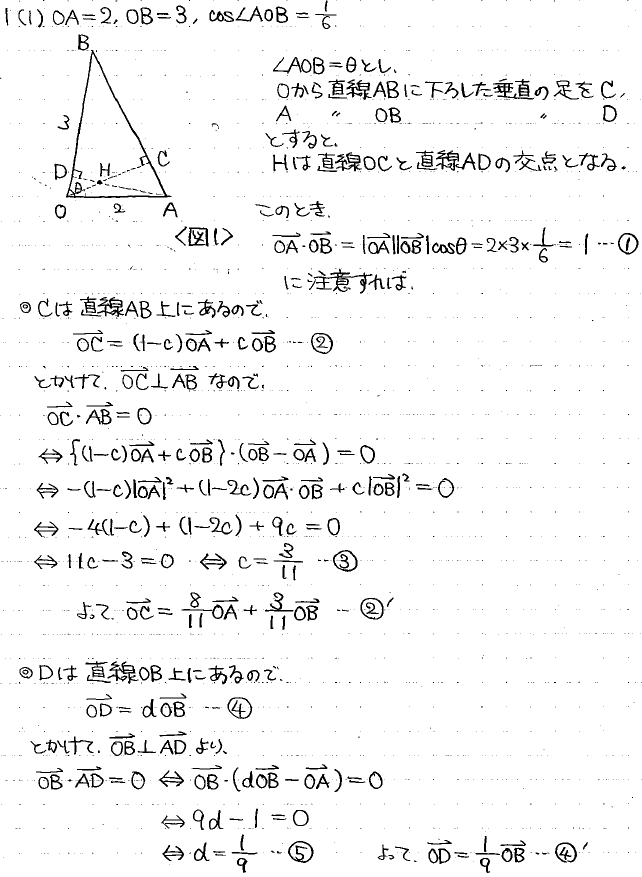 1 (1) OA=2, OB=3, cos∠AOB=1/6
B
3
D H C
θ
O 2 A
<図1>
∠AOB=θとし、
Oから直線ABに下ろした垂直の足をC,
A 〃 OB 〃 D
とすると、
Hは直線OCと直線ADの交点となる.
このとき、
→OA・→OB=|→OA||→OB|cosθ=2×3×1/6=1 …①
に注意すれば、
◎Cは直線AB上にあるので、
→OC=(1-c)→OA+c→OB …②
とかけて、→OC⊥→AB なので、
→OC・→AB=0
⇔{(1-c)→OA+c→OB}・(→OB-→OA)=0
⇔-(1-c)|→OA|²+(1-2c)→OA・→OB+c|→OB|²=0
⇔-4(1-c)+(1-2c)+9c=0
⇔11c-3=0 ⇔c=3/11 …③
よって、→OC=8/11→OA+3/11→OB …②′
◎Dは直線OB上にあるので、
→OD=d→OB …④
とかけて、→OB⊥→AD より、
→OB・→AD=0 ⇔→OB・(d→OB-→OA)=0
⇔9d-1=0
⇔d=1/9 …⑤ よって、→OD=1/9→OB …④′